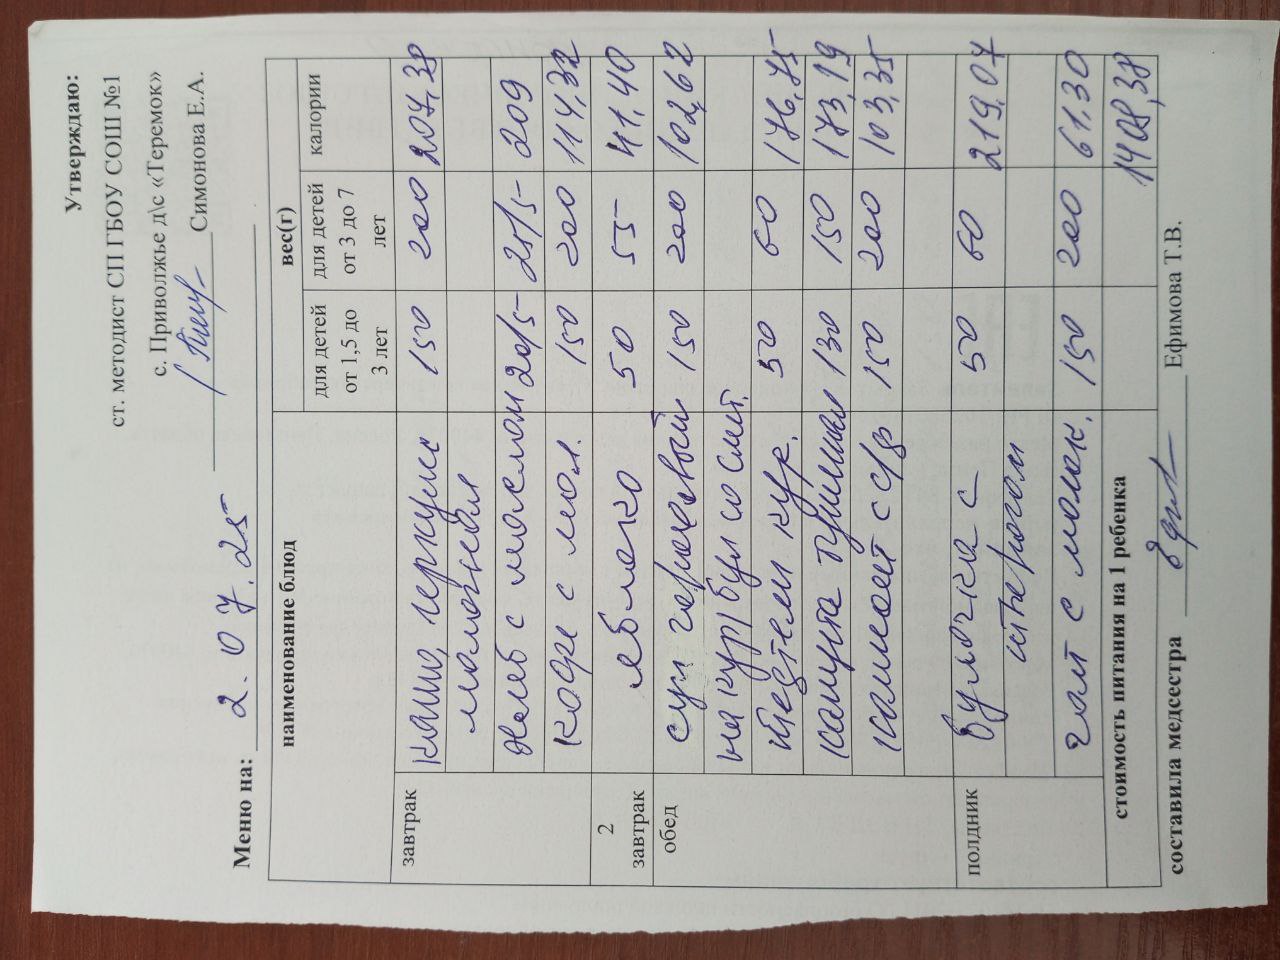 Утверждаю:
ст. методист СП ГБОУ СОШ №1
с. Приволжье д\с «Теремок»
Симонова Е.А.
Меню на: 2. 07. 25
наименование блюд вес(г) калории
для детей от 1,5 до 3 лет для детей от 3 до 7 лет
завтрак каша геркулес 150 200 207,38
молочная
хлеб с маслом 20/5 25/5 209
кофе с мол. 150 200 114,32
2 завтрак яблоко 50 55 41,40
обед суп гороховый 150 200 102,62
на кур/бул со смет.
тефтели кур. 50 60 176,75
капуста тушеная 130 150 173,19
компот с с/ф 150 200 103,35
полдник булочка с 50 60 219,07
творогом
чай с молок. 150 200 61,30
стоимость питания на 1 ребенка 1408,38
составила медсестра Ефимова Т.В.